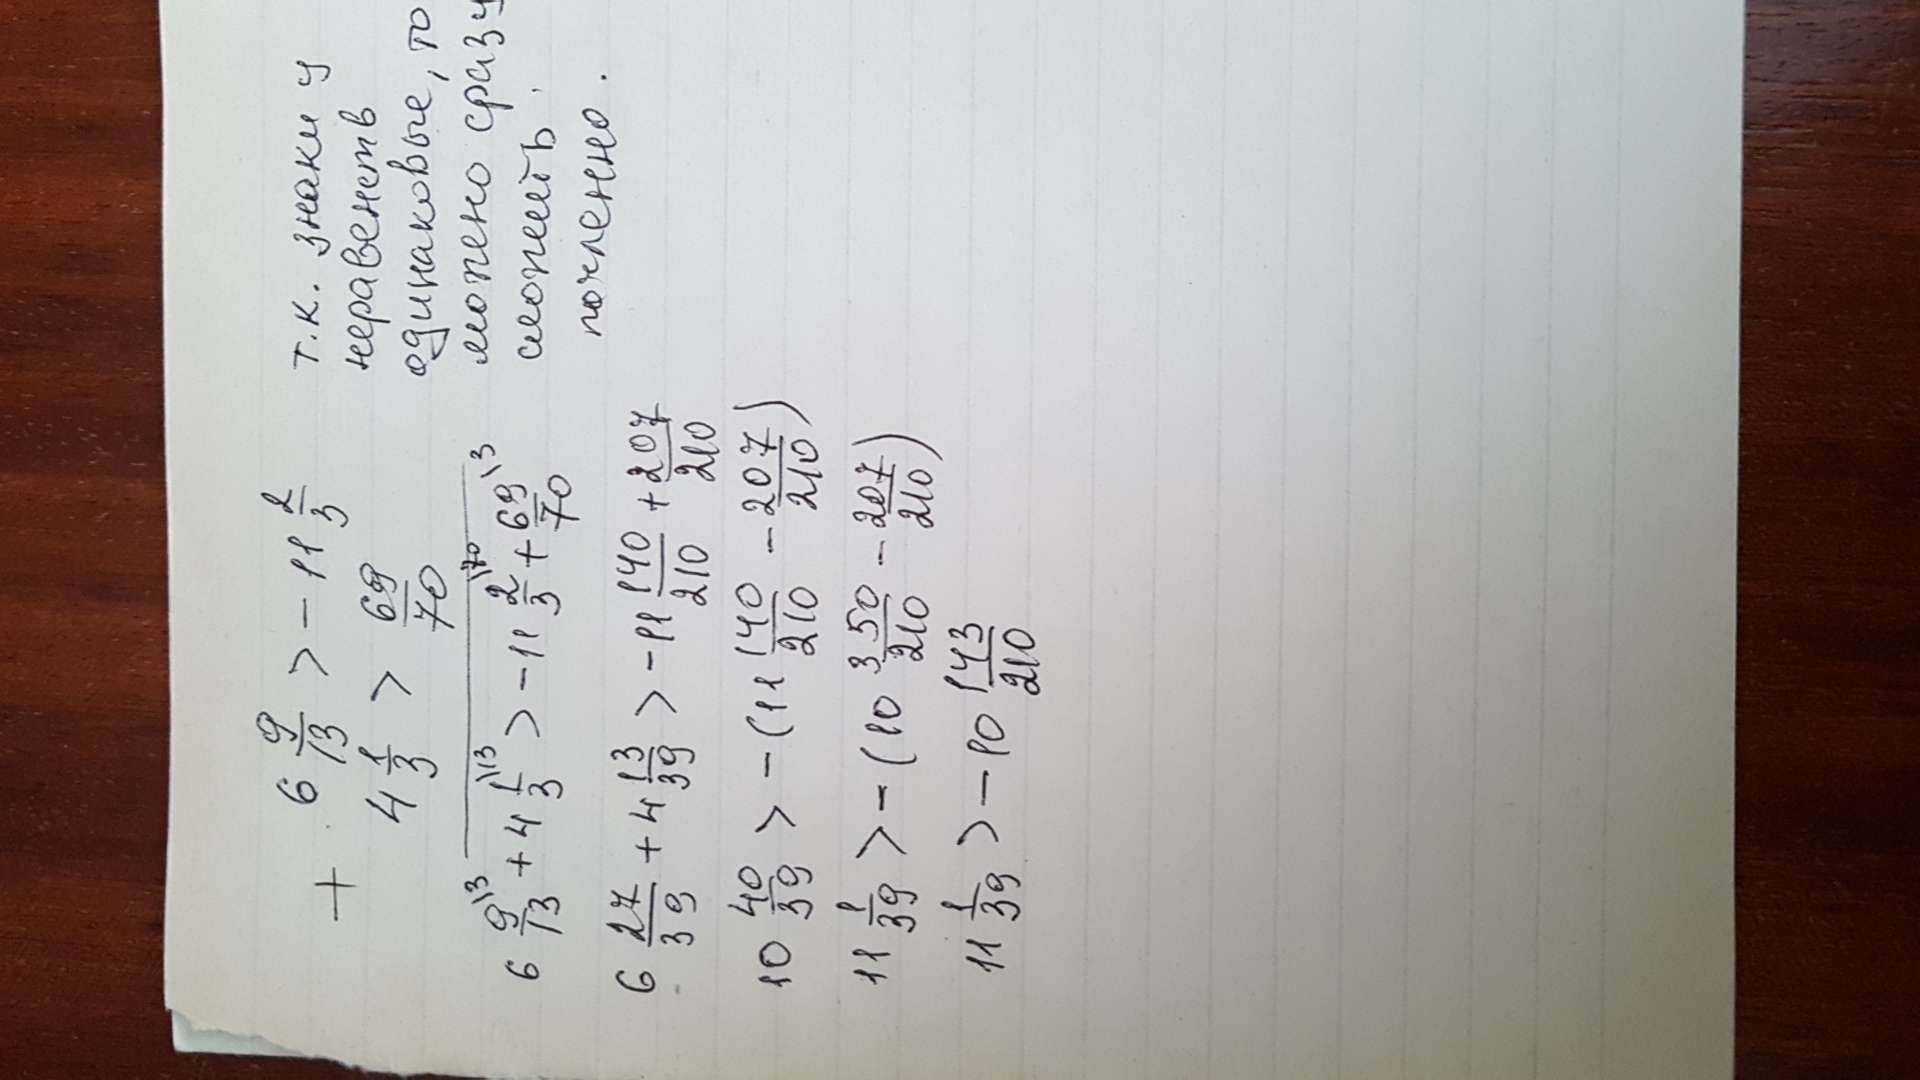 6 9/13 > -11 2/3
+
4 1/3 > 69/70
6 9/13 \3 + 4 1/3 \13 > -11 2/3 \70 + 69/70 \3
6 27/39 + 4 13/39 > -11 140/210 + 207/210
10 40/39 > -(11 140/210 - 207/210)
11 1/39 > -(10 350/210 - 207/210)
11 1/39 > -10 143/210
т.к. знаки у
неравенств
одинаковые, то
можно сразу
сложить
почленно.